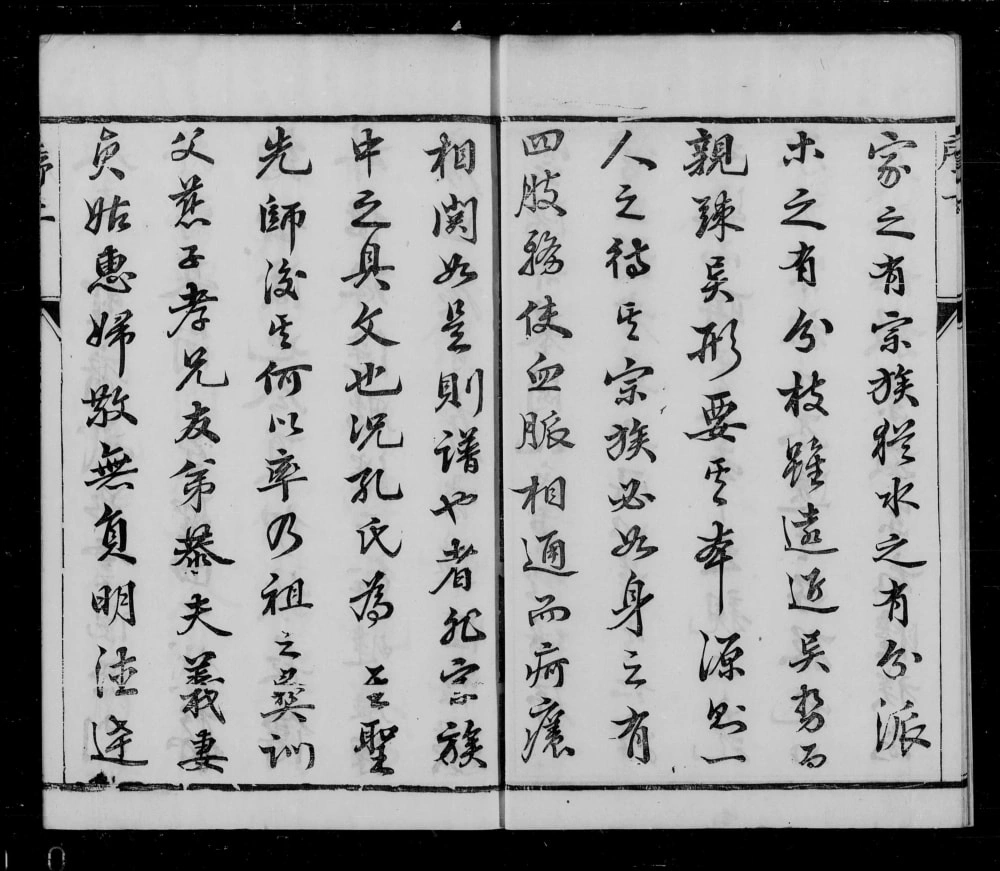 家之有宗族猶水之有分派
木之有分枝雖遠近異勢而
親疎異形要其本源則一
人之待其宗族必如身之有
四肢務使血脈相通而疴癢
相関如是則譜也者非宗族
中之具文也況孔氏為至聖
先師後其何以率乃祖之彛訓
父慈子孝兄友弟恭夫義妻
貞姑惠婦敬無負明德達